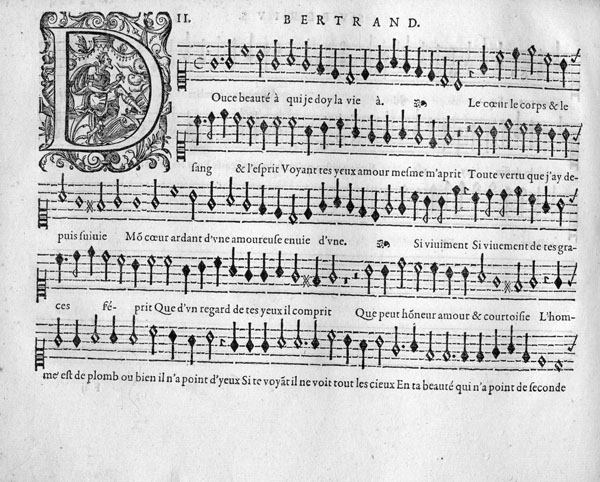 II. BERTRAND.
DOuce beauté à qui je doy la vie à. Le cœur le corps & le
sang & l'esprit Voyant tes yeux amour mesme m'aprit Toute vertu que j'ay de-
puis suivie Mõ cœur ardant d'vne amoureuse enuie d'vne. Si viuiment Si viuement de tes gra-
ces fé- prit Que d'vn regard de tes yeux il comprit Que peut hõneur amour & courtoisie L'hom-
me est de plomb ou bien il n'a point d'yeux Si te voyãt il ne voit tout les cieux En ta beauté qui n'a point de seconde